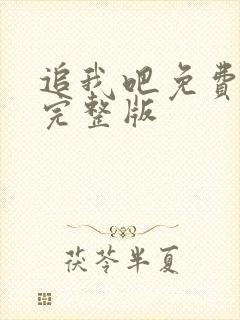 追我吧免费
完整版
茯苓半夏